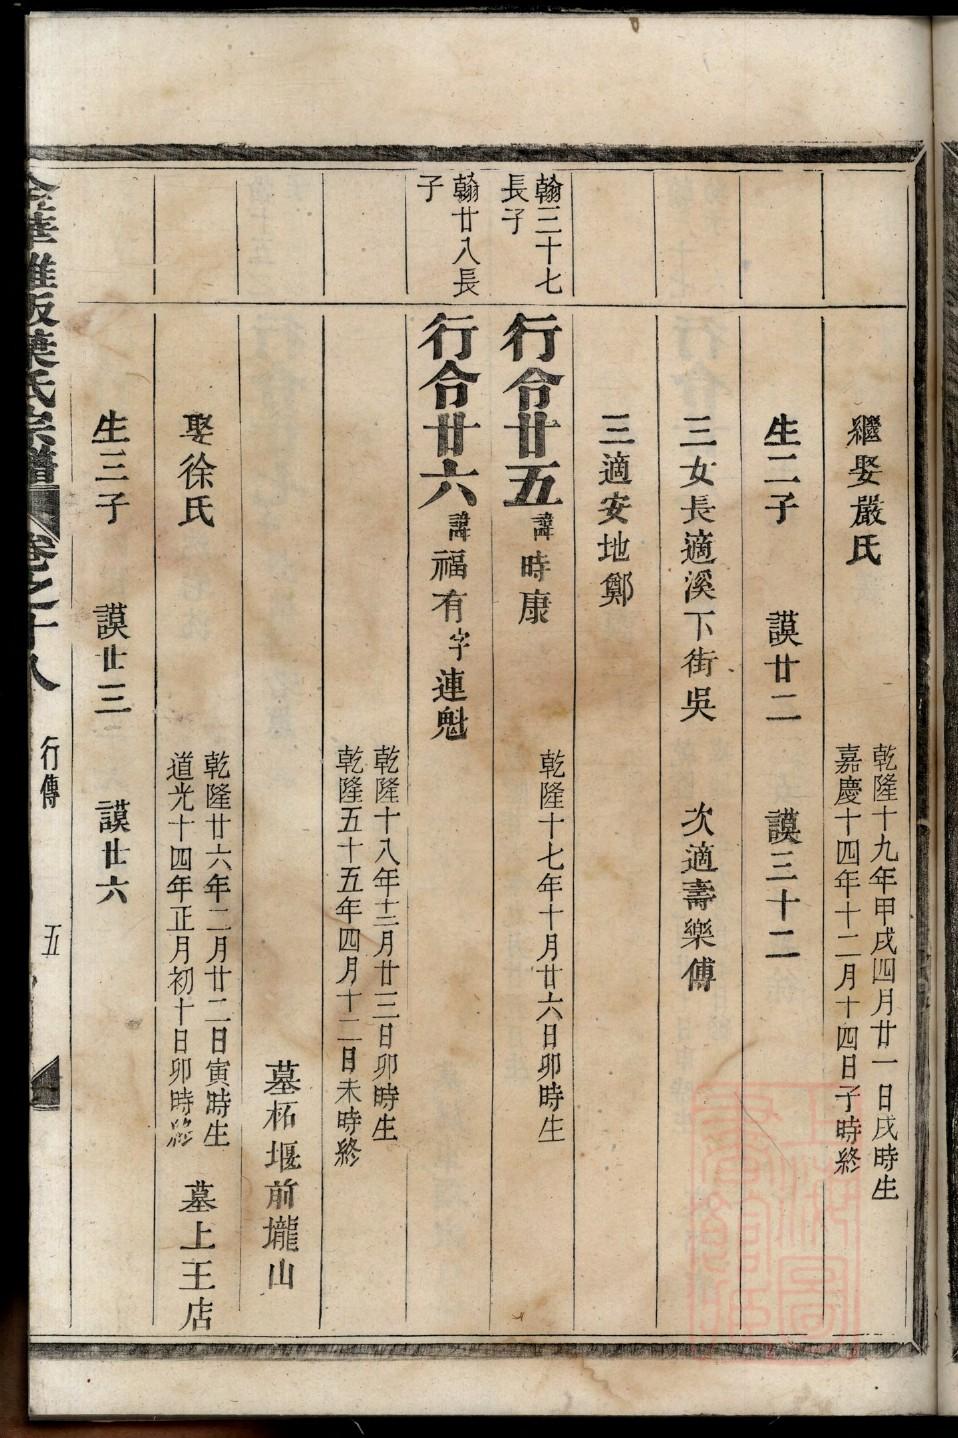 繼娶嚴氏
乾隆十九年甲戌四月廿一日戌時生
嘉慶十四年十二月十四日子時終
生二子 謨廿二 謨三十二
三女長適溪下街吳 次適壽樂傅
三適安地鄭
翰三十七
長子
行令廿五 諱時康 乾隆十七年十月廿六日卯時生
翰廿八長
子
行令廿六 諱福有字連魁
乾隆十八年十二月廿三日卯時生
乾隆五十五年四月十二日未時終
墓柘堰前壠山
娶徐氏
乾隆廿六年二月廿二日寅時生
道光十四年正月初十日卯時終
墓上王店
生三子 謨廿三 謨廿六
金華雅畈葉氏宗譜 卷之十八 行傳 五
上海圖書館藏